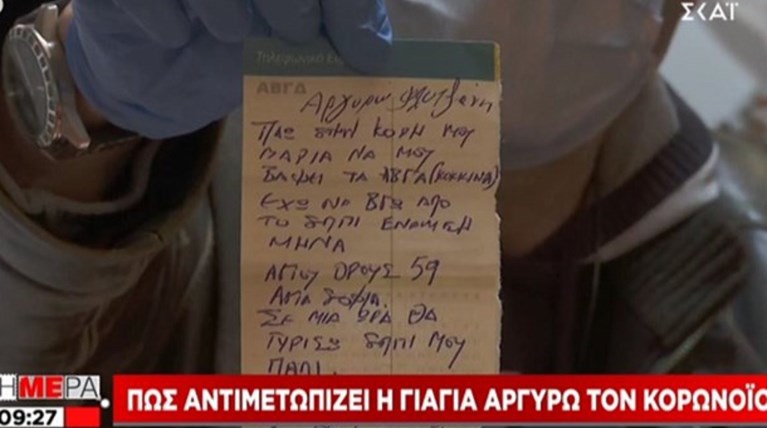 ΣΚΑΪ
Τηλεφωνικό
ΑΒΓΔ
Αργυρω
ΠΑΩ ΣΤΗΝ ΚΟΡΗ ΜΟΥ
ΜΑΡΙΑ ΝΑ ΜΟΥ
ΒΑΨΕΙ ΤΑ ΑΒΓΑ (ΚΟΚΚΙΝΑ)
ΕΧΩ ΝΑ ΒΓΩ ΑΠΟ
ΤΟ ΣΠΙΤΙ ΕΝΑΜΙΣΗ
ΜΗΝΑ
ΑΓΙΟΥ ΟΡΟΥΣ 59
ΑΓΙΑ ΣΟΦΙΑ.
ΣΕ ΜΙΑ ΩΡΑ ΘΑ
ΓΥΡΙΣΩ ΣΠΙΤΙ ΜΟΥ
ΠΑΛΙ.
ΗΜΕΡΑ
09:27
ΠΩΣ ΑΝΤΙΜΕΤΩΠΙΖΕΙ Η ΓΙΑΓΙΑ ΑΡΓΥΡΩ ΤΟΝ ΚΟΡΩΝΟΪΟ